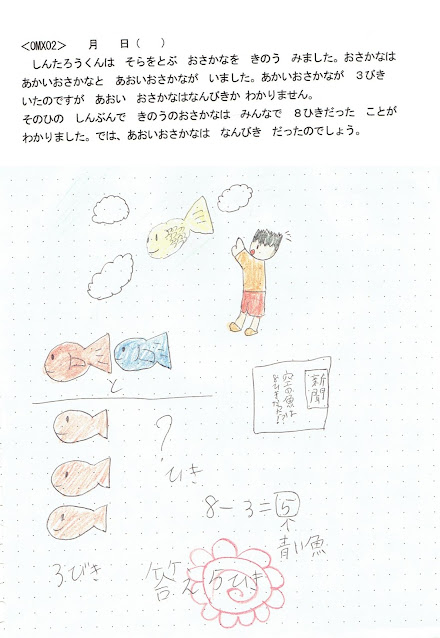 <OMX02>　月　日（　）
しんたろうくんは　そらをとぶ　おさかなを　きのう　みました。おさかなは
あかいおさかなと　あおいおさかなが　いました。あかいおさかなが　３びき
いたのですが　あおい　おさかなはなんびきか　わかりません。
そのひの　しんぶんで　きのうのおさかなは　みんなで　８ひきだった　ことが
わかりました。では、あおいおさかなは　なんびき　だったのでしょう。
新聞
空の魚は
と
?
ひき
8－3=5
↑
青い魚
3びき
答え 5ひき